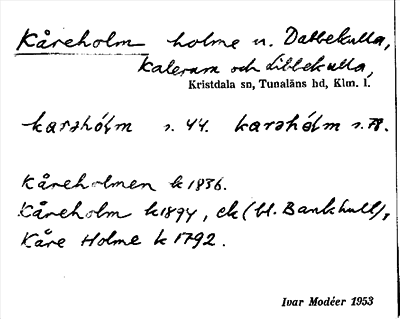 Kåreholm holme n. Dabbekulla,
Kaleram och Libbekulla,
Kristdala sn, Tunaläns hd, Klm. l.
karəhólm s. 44. karəhólm s. 78.
Kåreholmen k 1836.
Kåreholm k 1894, ek (bl. Bankhult),
Kåre Holme k 1792.
Ivar Modéer 1953